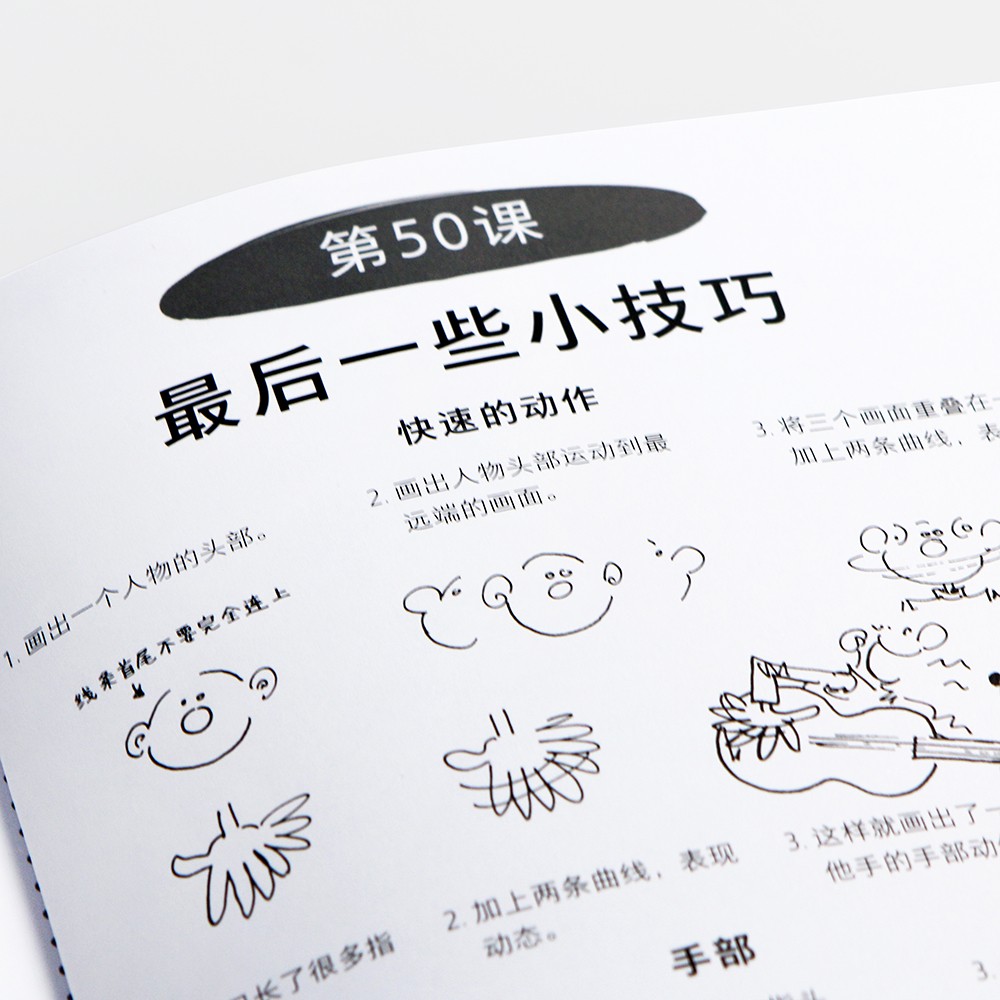 第50课
最后一些小技巧
快速的动作
1. 画出一个人物的头部。
线条首尾不要完全连上
2. 画出人物头部运动到最
远端的画面。
3. 将三个画面重叠在一
加上两条曲线，表
长了很多指
2. 加上两条曲线，表现
动态。
3. 这样就画出了一
他手的手部动作
手部
3.